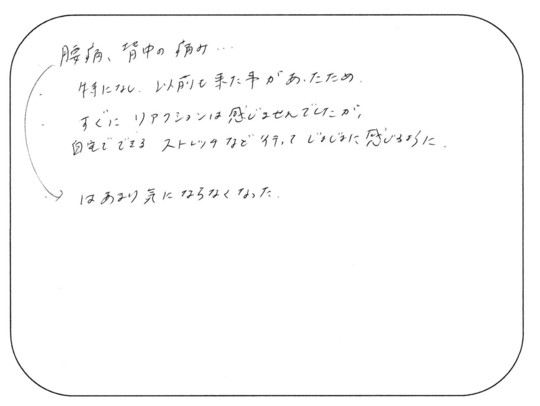 腰痛、背中の痛み…
・特になし、以前も来た事があったため.
・すぐにリアクションは感じませんでしたが、
自宅でできるストレッチなど行って じょじょに感じるように.
・はあまり気にならなくなった.